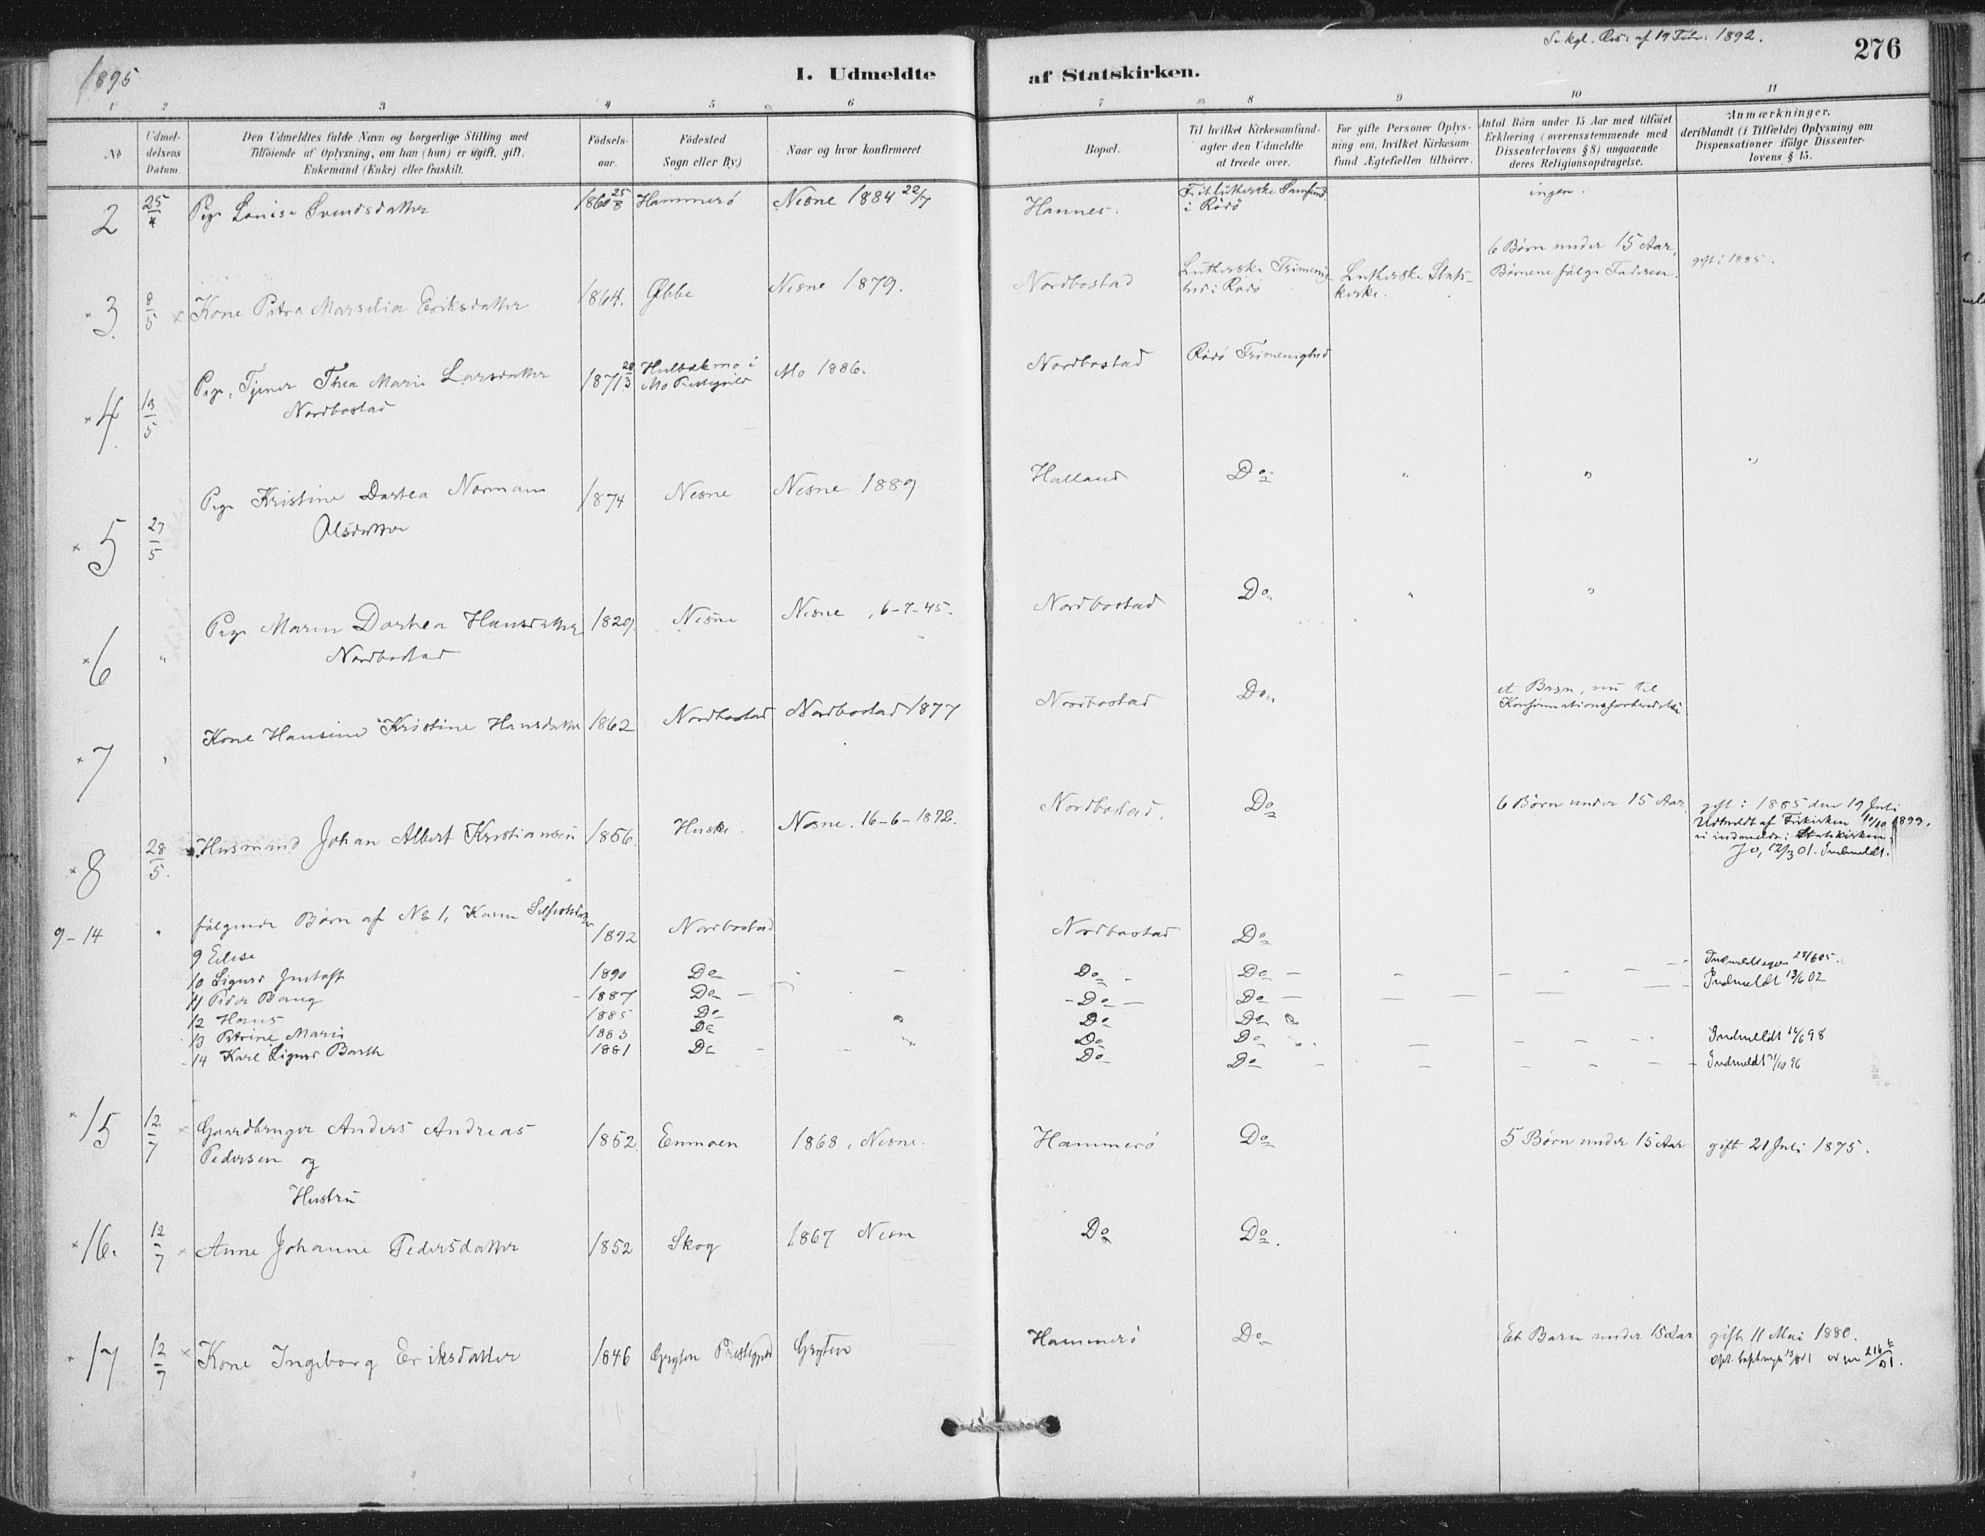 1895
I. Udmeldte af Statskirken.
Se kgl. Res. af 19 Febr. 1892.
276
1 2 3 4 5 6 7 8 9 10 11
No
Udmel-
delsens
Datum.
Den Udmeldtes fulde Navn og borgerlige Stilling med
Tilføiende af Oplysning, om han (hun) er ugift, gift,
Enkemand (Enke) eller fraskilt.
Födsels-
aar.
Födested
Sogn eller By.)
Naar og hvor konfirmeret.
Bopæl.
Til hvilket Kirkesamfund
agter den Udmeldte
at træde over.
For gifte Personer Oplys-
ning om, hvilket Kirkesam
fund Ægtefællen tilhörer.
Antal Börn under 15 Aar med tilföiet
Erklæring (overensstemmende med
Dissenterlovens § 8) angaaende
deres Religionsopdragelse.
Anmærkninger,
deriblandt (i Tilfælde) Oplysning om
Dispensationer ifölge Dissenter-
lovens § 15.
2 25/4 Pige Louise Svendsdatter 1860 25/8 Hammerö Nesne 1884 22/7 Hannes. Frilutherske Samfund ingen.
i Rödö
6 Børn under 15 Aar,
3 8/5 Kone Petra Marselia Eriksdatter 1864. Øbbe Nesne 1879. Nordbostad Lutherske Frimenig- Lutherske Stats- Børnene følge Faderen. gift i 1885.
hed i Rödö kirke.
4 13/5 Pige, Tjener Thea Marie Larsdatter 1871 28/3 i Mo 1886. Nordbostad Rödö Frimenighed
Nordbostad Mo Prestegjeld
5 27/5 Pige Kristine Dortea Normann 1874 Nesne Nesne 1889 Halland Do " " "
Olsdatter
6 " Pige Maren Dortea Hansdatter 1829 Nesne Nesne, 6-7-45. Nordbostad Do " "
Nordbostad
7 " Kone Hansine Kristine Hansdatter 1862 Nordbostad Nordbostad 1877 Nordbostad Do et Barn, nu til
8 28/5. Husmand Johan Albert Kristiansen 1856. Nesne. 16-6-1872. Nordbostad. Do 6 Børn under 15 Aar gift i 1885 den 19 Juli
Udmeldt af Frikirken 10/10 1899.
Statskirken.
12/3 01. Indmeldt.
9-14 " følgende Børn af No 1, Karen
9 Elise 1892 Nordbostad Nordbostad Do
10 Sigurd Gustaff 1890 Do Do Do Indmeldt igen 25/6 05.
11 Peder Bang 1887 Do Do Do Indmeldt 13/6 02
12 Hans 1885 Do Do Do
13 Petrine Marie 1883 Do Do Do Indmeldt 14/6 98
14 Karl Sigurd Barth 1881 Do Do Do Indmeldt 21/10 96
15 12/7 Gaardbruger Anders Andreas 1852. Enmoen 1868, Nesne. Hammerö Do 5 Børn under 15 Aar gift 21 Juli 1875.
Pedersen og
Hustru
16. 12/7 Anne Johanne Pedersdatter 1852 Skog 1867 Nesne Do Do.
17 12/7 Kone Ingeborg Eriksdatter 1846 Grytten Prestegjeld Grytten Hammerö Do Et Barn under 15 Aar gift 11 Mai 1880.